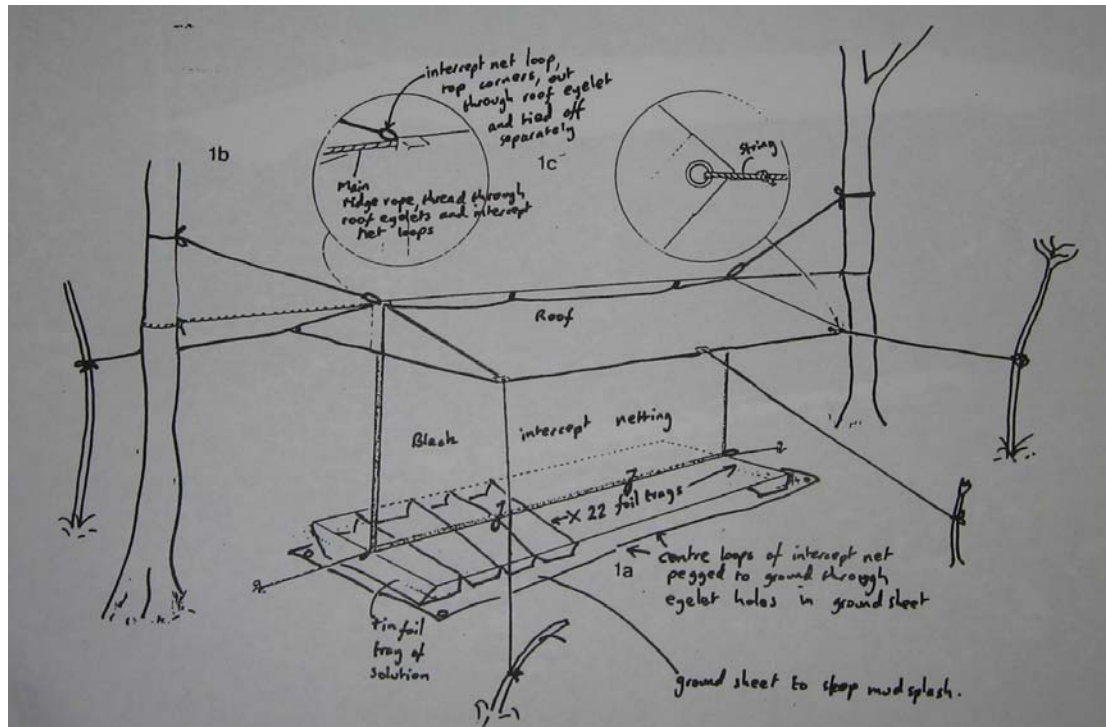 intercept net loop,
top corners, out
through roof eyelet
and tied off
separately
1b
1c
String
Main
ridge rope, thread through
roof eyelets and intercept
net loops
Roof
Black intercept netting
x 22 foil trays
centre loops of intercept net
1a
pegged to ground through
eyelet holes in groundsheet
tin foil
tray of
solution
ground sheet to stop mud splash.